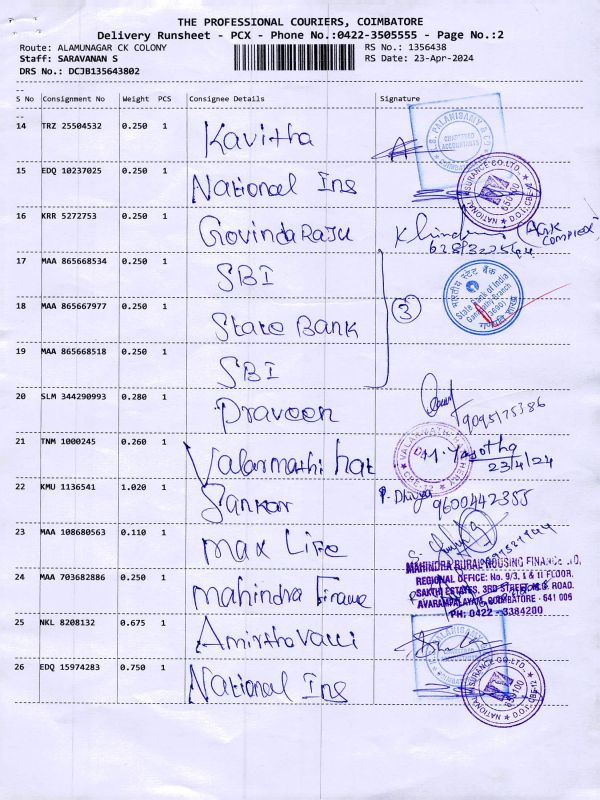 THE PROFESSIONAL COURIERS, COIMBATORE
Delivery Runsheet - PCX - Phone No.:0422-3505555 - Page No.:2
Route: ALAMUNAGAR CK COLONY RS No.: 1356438
Staff: SARAVANAN S RS Date: 23-Apr-2024
DRS No.: DCJB135643802
S No Consignment No Weight PCS Consignee Details Signature
14 TRZ 25504532 0.250 1 Kavitha
15 EDQ 10237025 0.250 1 National Ins
16 KRR 5272753 0.250 1 GovindaRaju
17 MAA 865668534 0.250 1 SBI
भारतीय स्टेट बैंक
State Bank of India
18 MAA 865667977 0.250 1 State Bank
3
19 MAA 865668518 0.250 1 SBI
20 SLM 344290993 0.280 1 Pravoon
9095175386
21 TNM 1000245 0.260 1 Valarmathi hat
M. Yasotha
23/4/24
22 KMU 1136541 1.020 1 Sankar
P. Dhivya 9600442355
23 MAA 108680563 0.110 1 max Life
24 MAA 703682886 0.250 1 mahindra Finance
MAHINDRA RURAL HOUSING FINANCE
REGIONAL OFFICE: No. 9/3, I & II FLOOR,
SAKTHI ESTATES, 3RD STREET, M.G. ROAD,
AVARAMPALAYAM, COIMBATORE - 641 006
PH: 0422 - 3384200
25 NKL 8208132 0.675 1 Amirthavalli
26 EDQ 15974283 0.750 1 National Ins